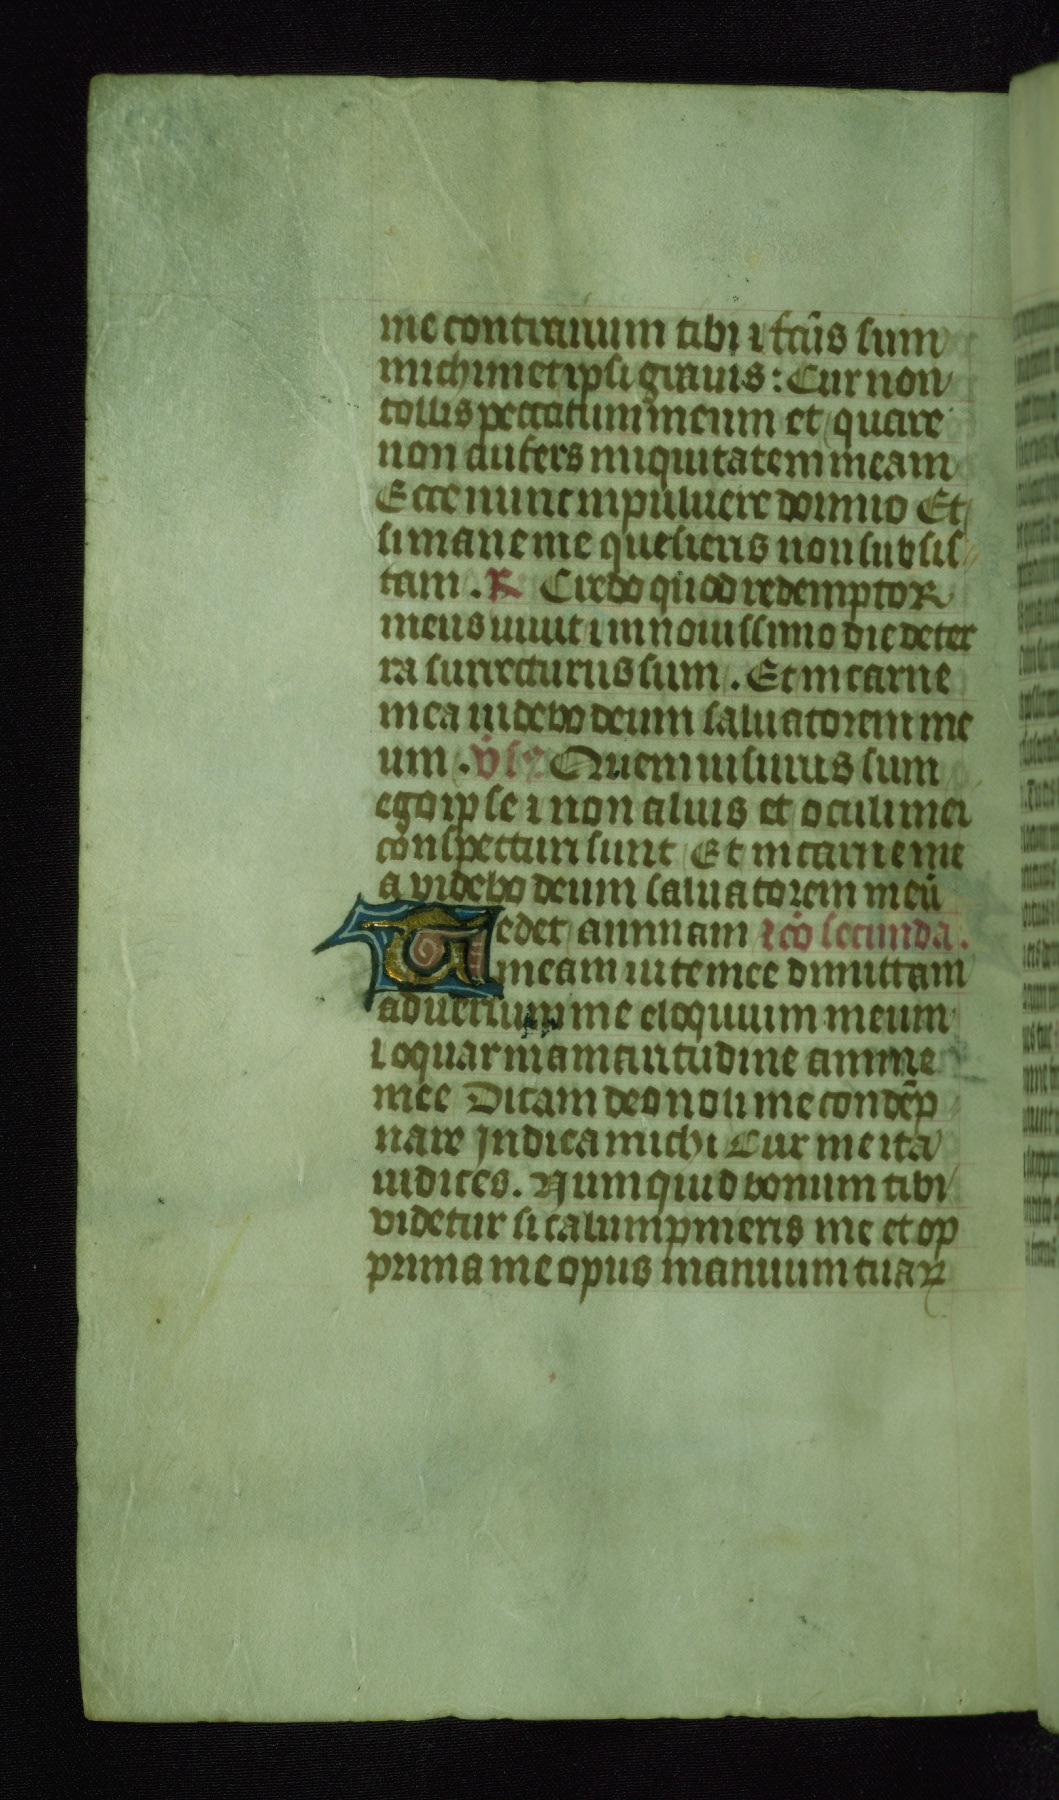 me contrarium tibi ⁊ fc̄us sum
michimetipsi grauis: Cur non
tollis peccatum meum et quare
non aufers iniquitatem meam
Ecce nunc in puluere dormio Et
si mane me quesieris non subsis
tam. ℟ Credo quod redemptor
meus uiuit ⁊ in nouissimo die de ter
ra surrecturus sum. Et in carne
mea uidebo deum saluatorem me
um. Quem uisurus sum
ego ipse ⁊ non alius et oculi mei
conspecturi sunt Et in carne me
a videbo deum saluatorem meū
Tedet animam lc̄o secunda.
meam uite mee dimittam
aduersum me eloquium meum
⁊ oquar in amaritudine anime
mee Dicam deo noli me condēp
nare Indica michi Cur me ita
iudices. Numquid bonum tibi
videtur si calumpnieris me et op
prima me opus manuum tuaꝝ